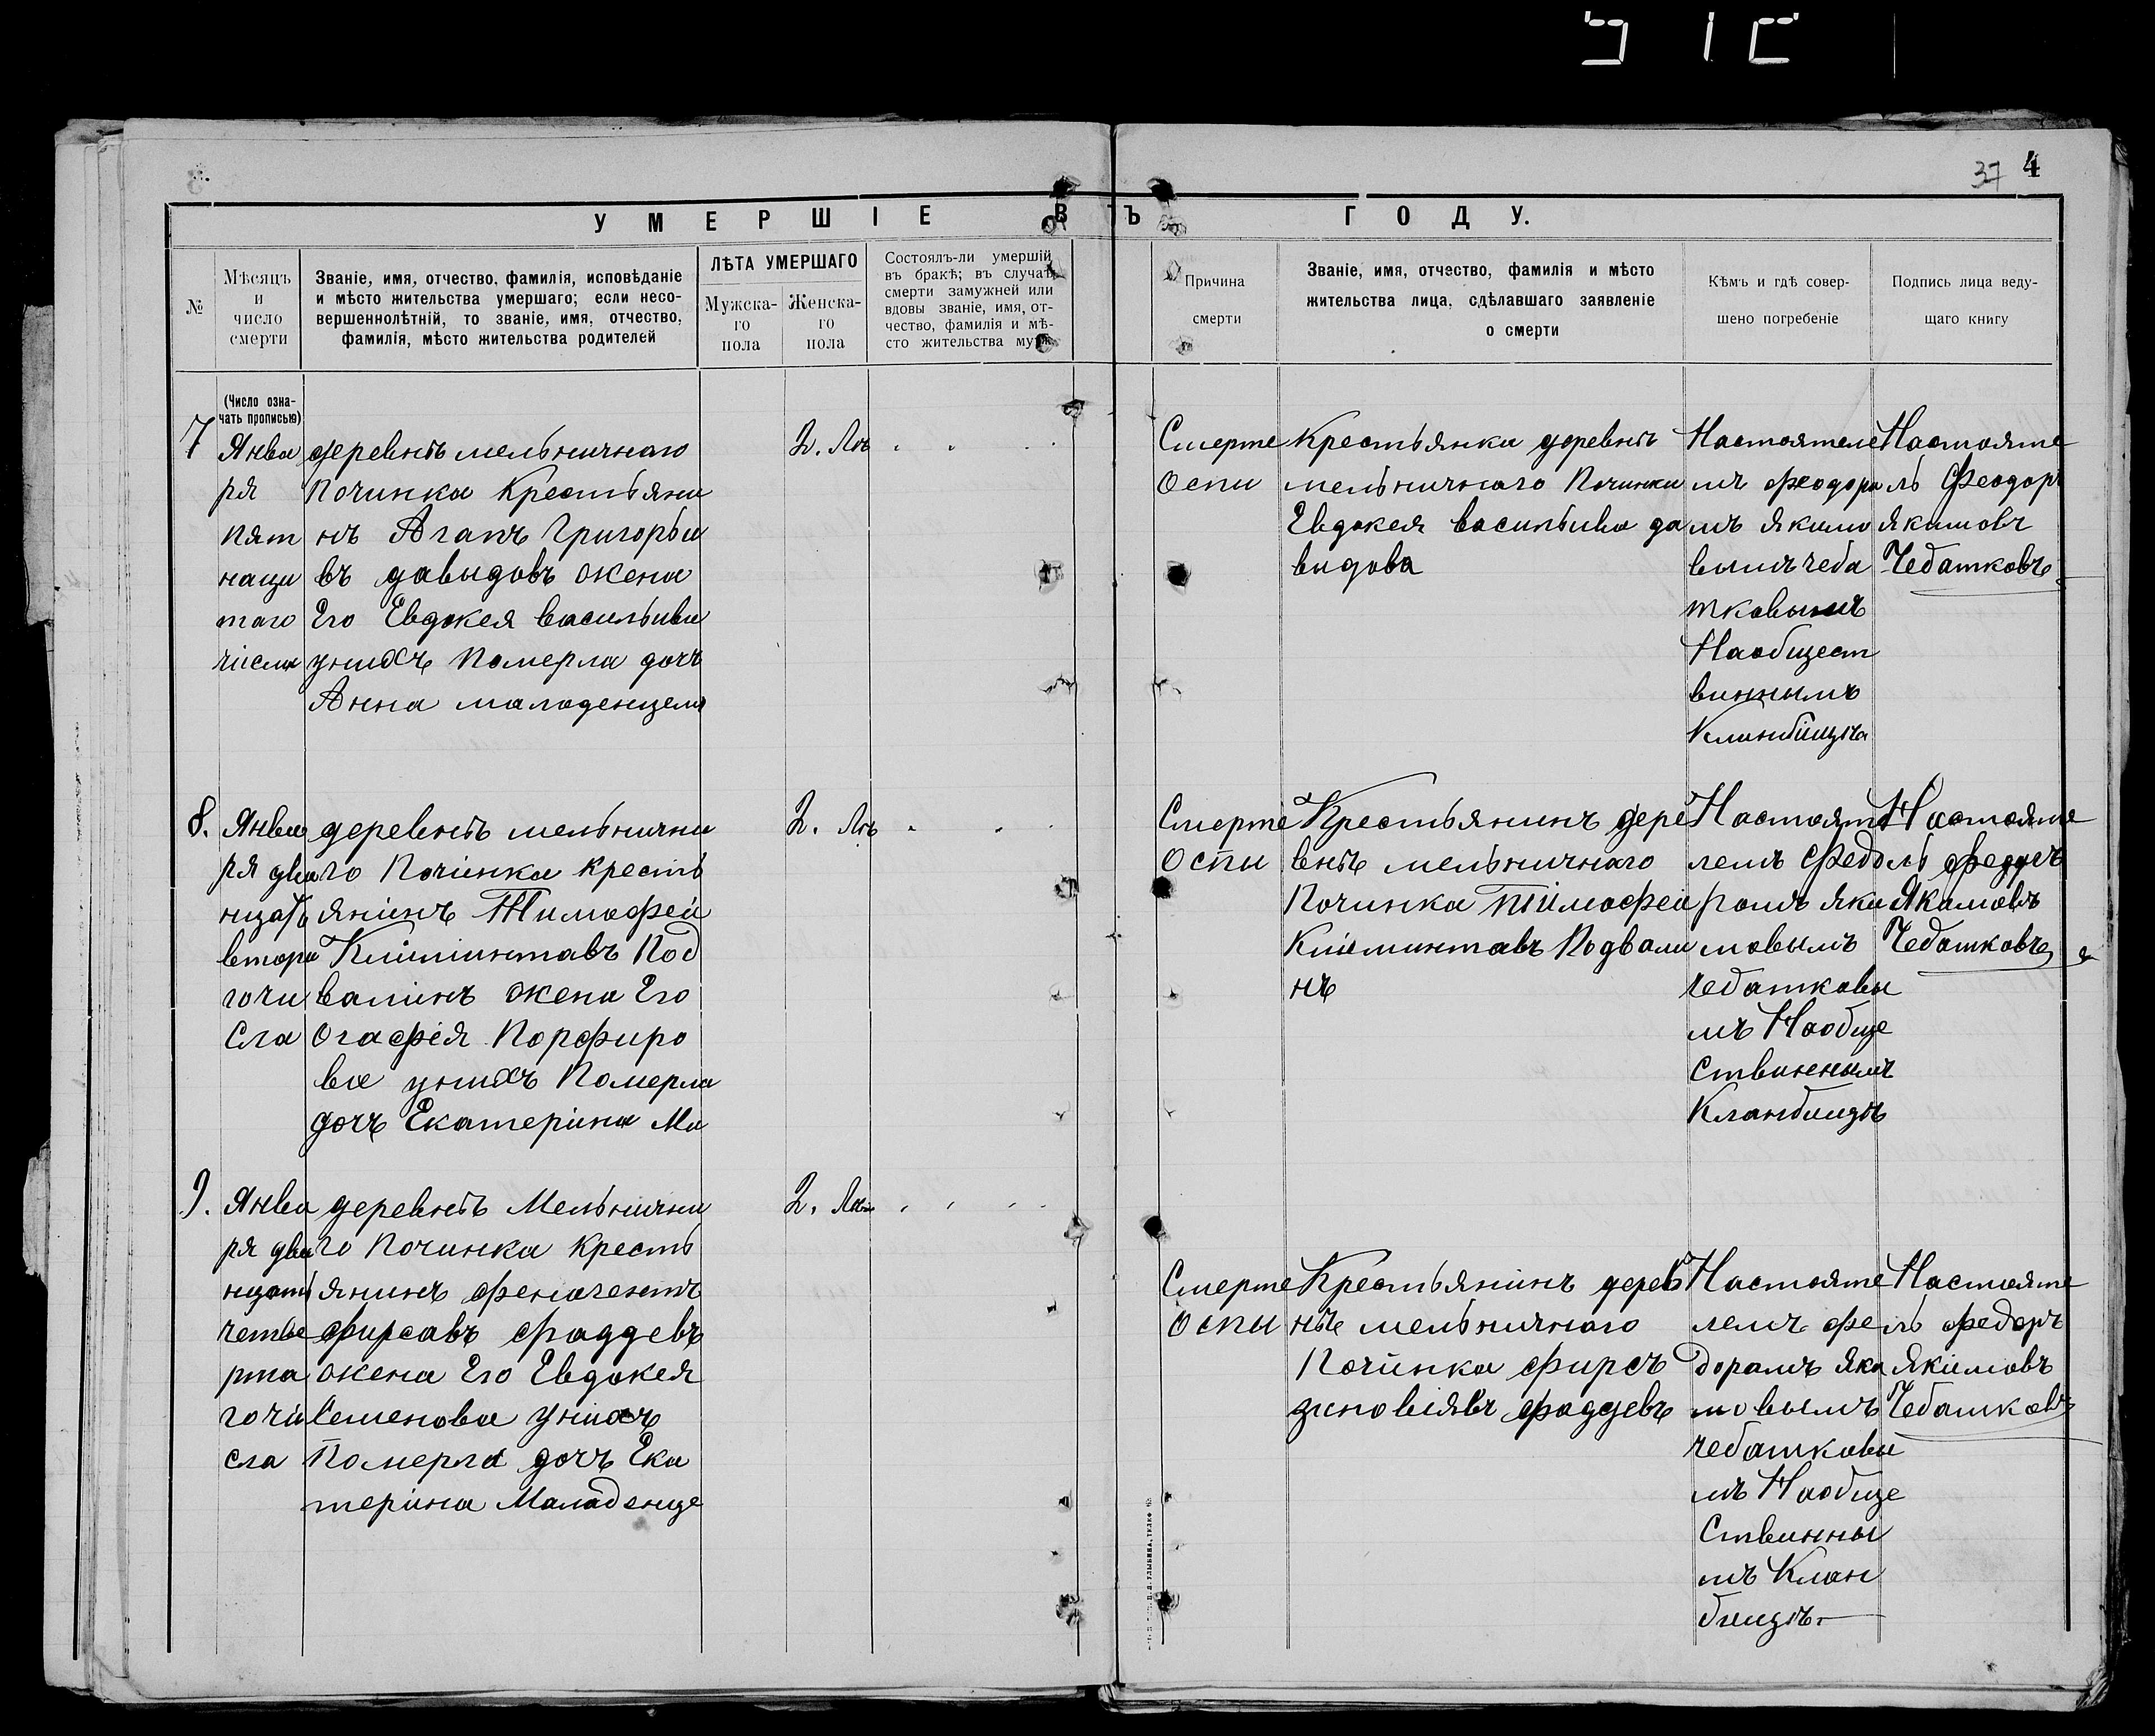 37 4
УМЕРШІЕ ВЪ ГОДУ.
№
Мѣсяцъ
и
число
смерти
Званіе, имя, отчество, фамилія, исповѣданіе
и мѣсто жительства умершаго; если несо-
вершеннолѣтній, то званіе, имя, отчество,
фамилія, мѣсто жительства родителей
ЛѢТА УМЕРШАГО
Мужска-
го
пола
Женска-
го
пола
Состоялъ-ли умершій
въ бракѣ; въ случаѣ
смерти замужней или
вдовы званіе, имя, от-
чество, фамилія и мѣ-
сто жительства мужа
Причина
смерти
Званіе, имя, отчество, фамилія и мѣсто
жительства лица, сдѣлавшаго заявленіе
о смерти
Кѣмъ и гдѣ совер-
шено погребеніе
Подпись лица веду-
щаго книгу
(Число озна-
чать прописью)
7
Янва
ря
пят
наци
таго
числа
деревнѣ мельничнаго
Починка Крестьяни
нъ Агапъ Григорьи
въ давыдовъ жена
Его Евдокея васильива
унихъ Померла дочъ
Анна маладенцемъ
2. Лѣ
Смерте
Оспи
Крестьянка деревнѣ
мельничнаго Починки
Евдокея васильива да
видова
Настоятеле
мъ феодора
мъ якимо
вымъ чеба
тковымъ
Наобщест
виннымъ
Кланбищѣ
Настояте
лъ Феодоръ
якимовъ
Чебатковъ
8.
Янва
ря два
нцать
втора
гочи
Сла
деревнѣ мельнична
го Починка кресть
янинъ Тимофей
Климинтавъ Под
валинъ жена Его
Огафія Порфиро
ва унихъ Померла
дочъ Екатерина Ма
2. Лѣ
Смерте
Оспи
Крестьянинъ дере
внѣ мельничнаго
Починка Тимофей
Климинтавъ Подвали
нъ
Настояте
лемъ Федо
ромъ яки
мовымъ
чебаткавы
мъ Наобще
Ствиннымъ
Кланбищѣ
Настояте
лъ федоръ
Якимовъ
Чебатковъ
9.
Янва
ря два
нцать
четве
рта
гочи
сла
деревнѣ Мельнична
го Починка кресть
янинъ
фирсавъ фаддевъ
жена Его Евдокея
Семенова унихъ
Померла дочъ Ека
терина Маладенце
2. Лѣ
Смерте
Оспи
Крестьянинъ дерев
нѣ мельничнаго
Починка фирсъ
зиновіявъ фаддевъ
Настояте
лемъ фе
дорамъ яки
мовымъ
чебаткавы
мъ Наобще
Ствинны
мъ Клан
бищѣ
Настояте
лъ федоръ
Якимовъ
Чебатковъ